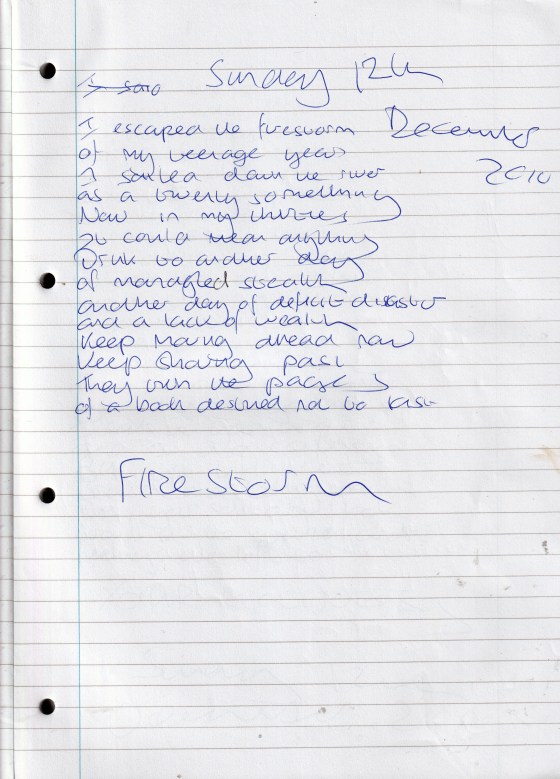 Sunday 12th
I said
I escaped the firestorm
December
of my teenage years
2010
I sailed down the river
as a twenty something
Now in my thirties
It could mean anything
Drink to another day
of managed stealth
another day of deficit disaster
and a lack of wealth
Keep moving ahead now
Keep sharing past
They own the pages
of a book destined not to last
Firestorm